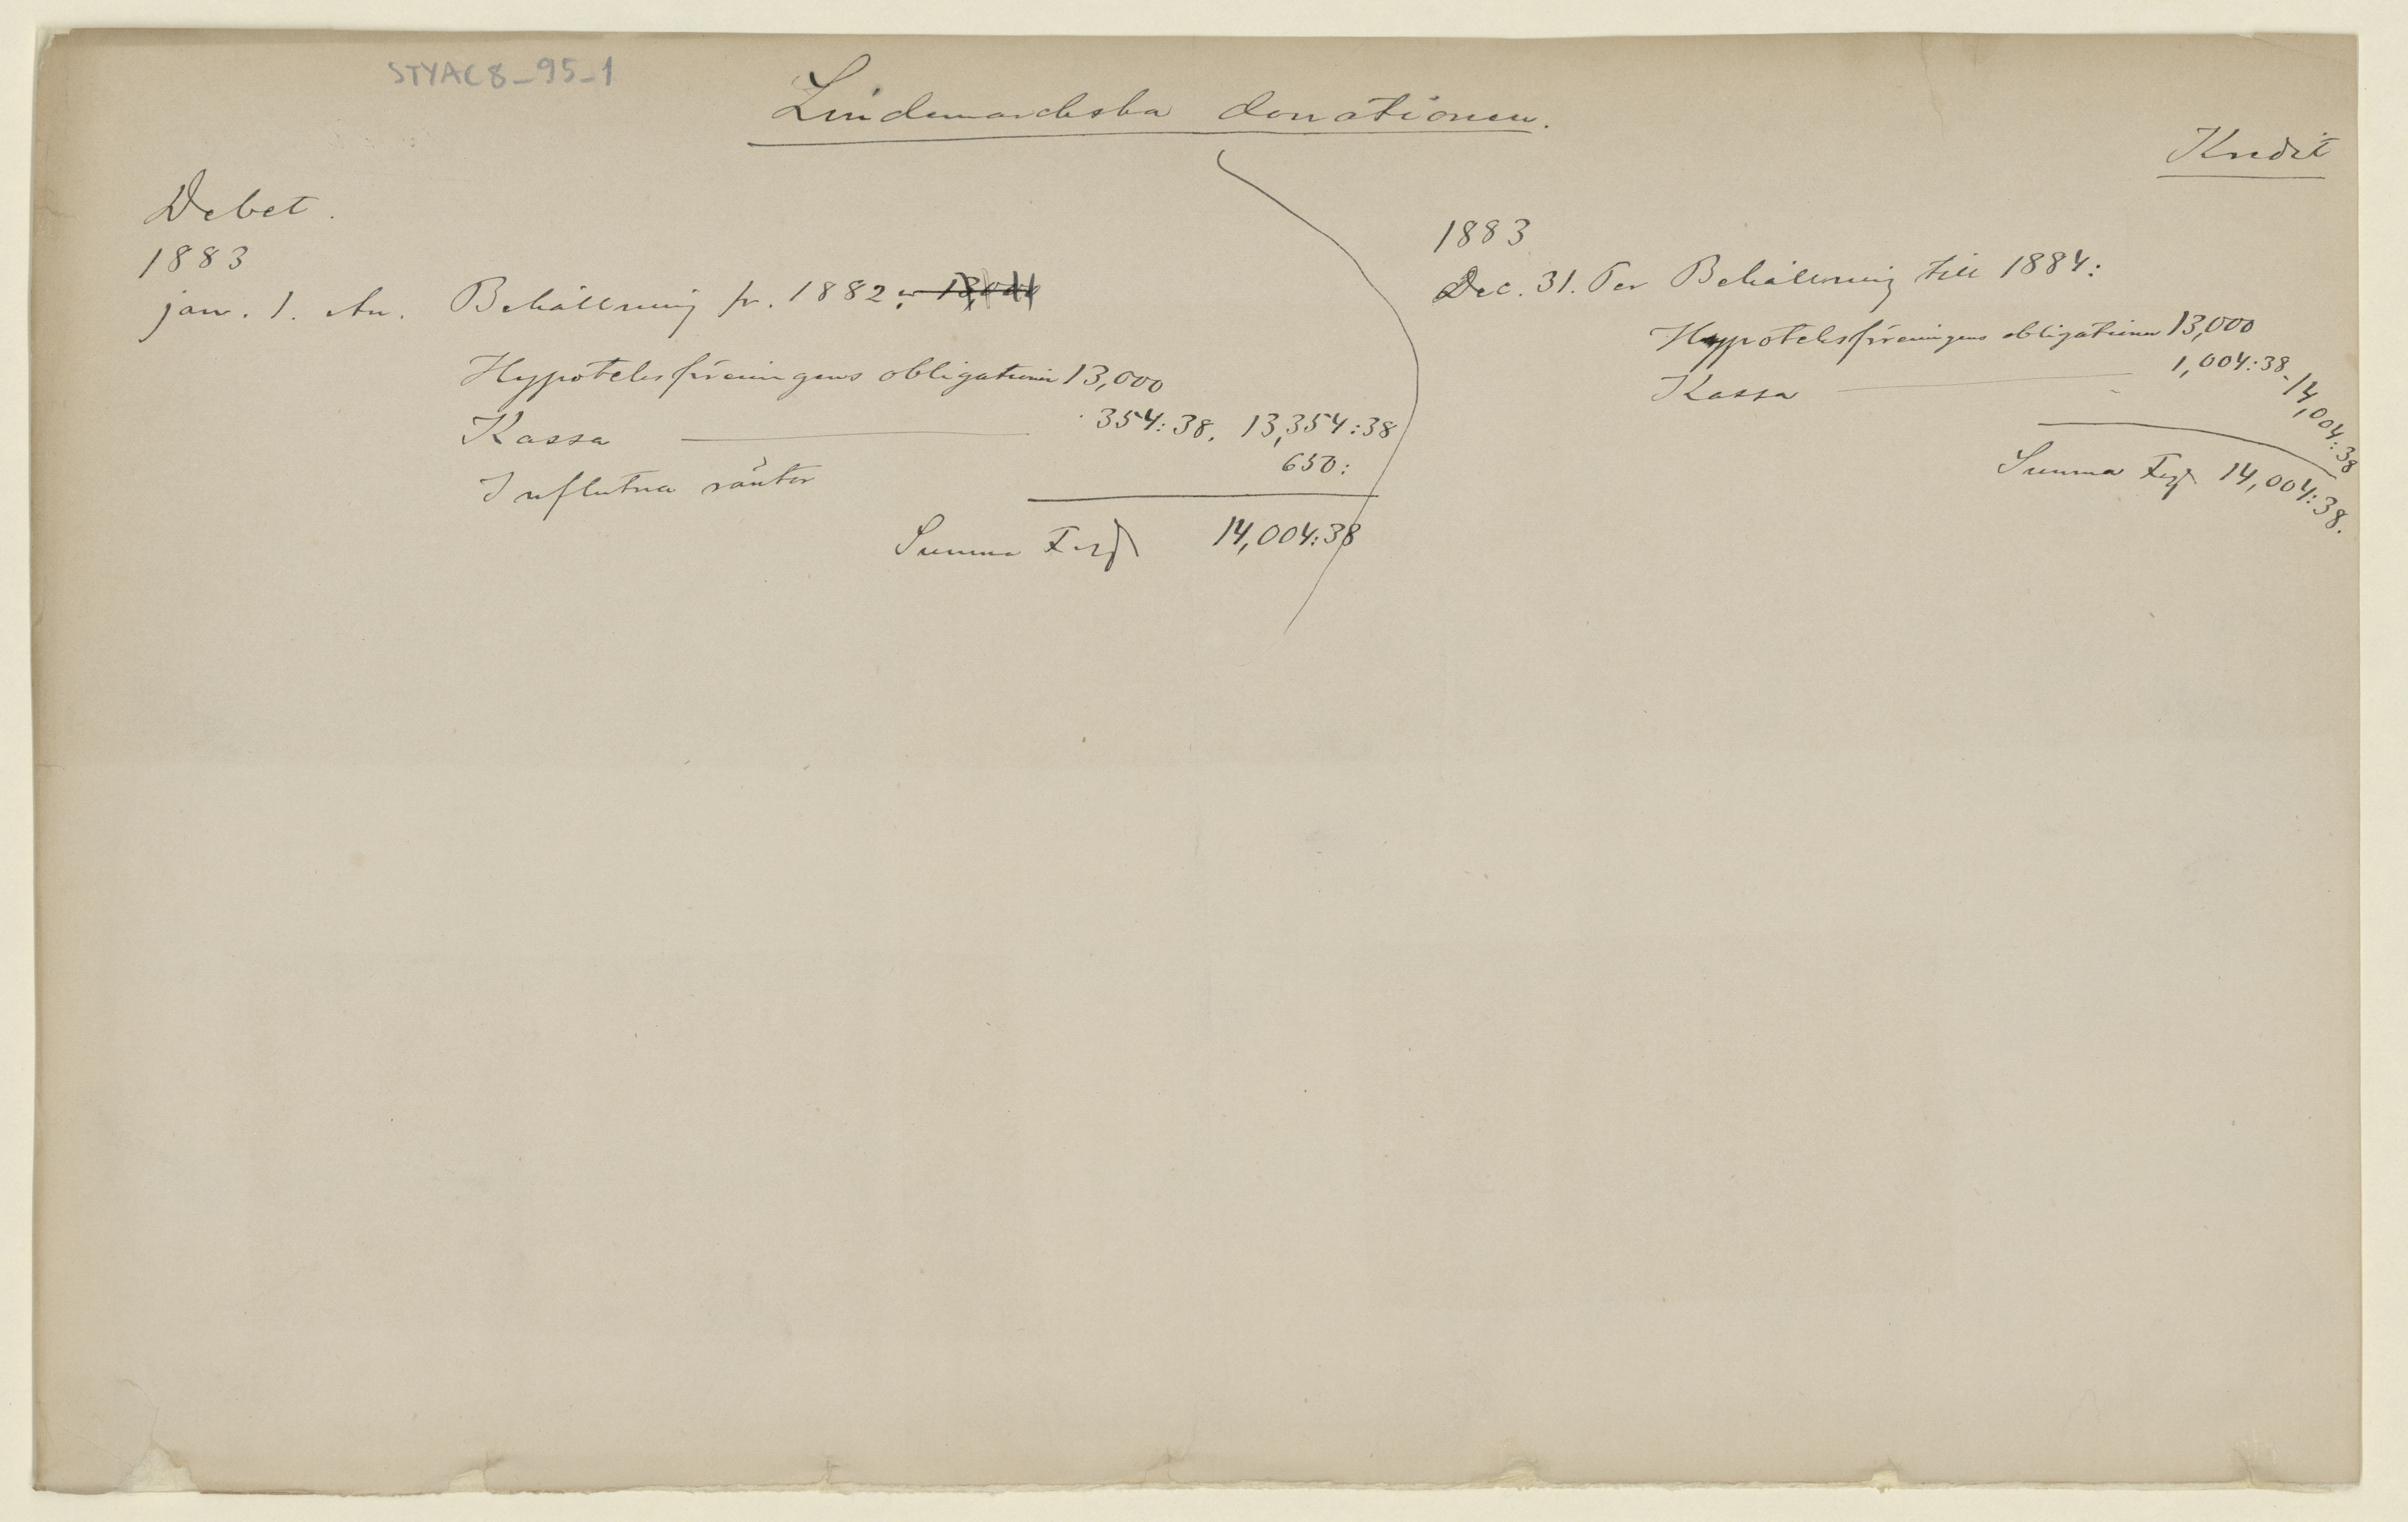 STYAC8_95_1
Lindemarkska donationen.
Kredit
Debet.
1883
jan. 1. An. Behållning fr. 1882: 13,000
Hypoteksföreningens obligationer 13,000
Kassa 354:38. 13,354:38
Influtna räntor 650:
Summa 14,004:38
1883
Dec. 31. Per Behållning till 1884:
Hypoteksföreningens obligationer 13,000
Kassa 1,004:38 - 14,004:38
Summa 14,004:38.